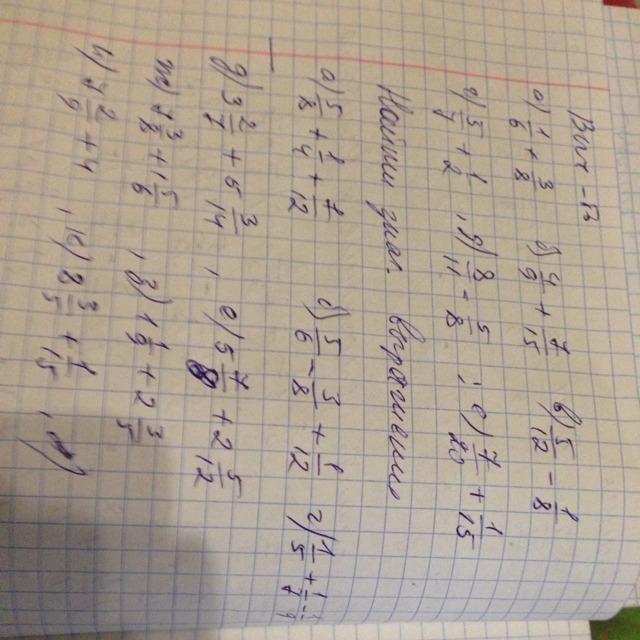 а) 1/6 + 3/8 б) 4/9 + 7/15 в) 5/12 - 1/8
г) 5/7 + 1/2, д) 8/11 - 5/8; е) 7/20 + 1/15
Найти знач. выражений
а) 5/8 + 1/4 + 1/12 б) 5/6 - 3/8 + 1/12 г) 1/5 + 1/4 -
д) 3 2/7 + 5 3/14, е) 5 7/8 + 2 5/12
ж) 1 3/8 + 1 5/6, з) 1 1/9 + 2 3/5
и) 3 2/9 + 4, к) 2 3/5 + 1/15,